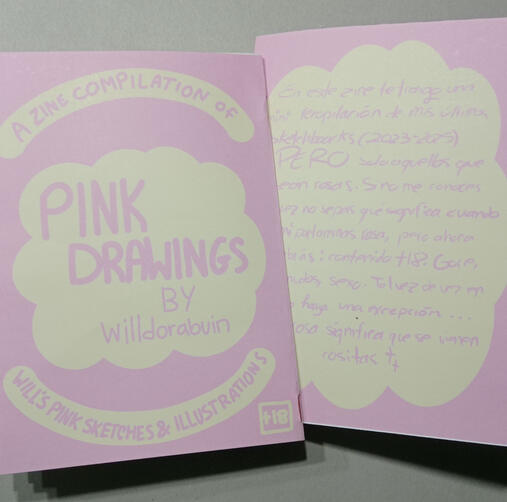 A ZINE COMPILATION OF
PINK
DRAWINGS
BY
Willdorabuin
WILL'S PINK SKETCHES & ILLUSTRATIONS
+18
En este zine te traigo una
recopilación de mis últimos
sketchbooks (2023-2025)
PERO solo aquellos que
sean rosas. Si no me conoces
vez no sepas que significa cuando
rosa, pero ahora
: contenido +18. Gore,
nudos, sexo. Tal vez de vez en
haya una excepción...
rosa significa que se vienen
cositas